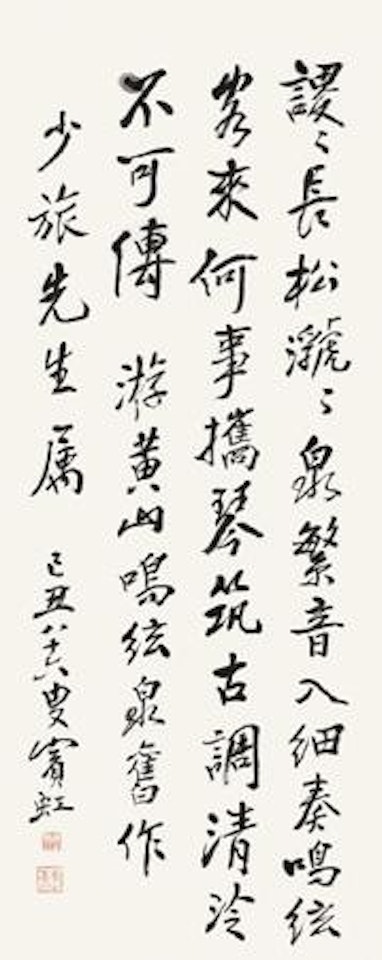 謖〻長松㶁〻泉繁音入細奏鳴絃
客來何事攜琴筑古調清泠
不可傳 游黃山鳴絃泉舊作
少旅先生屬 己丑八十六叟賓虹